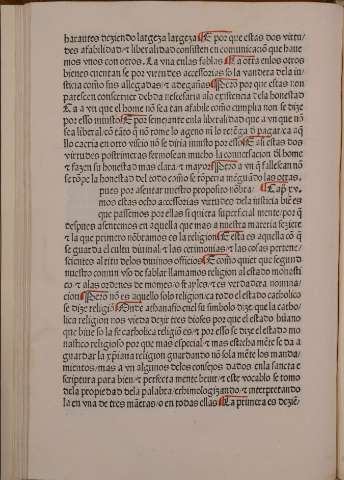 harautes deziendo largeza largeza E por que estas dos virtu/
des afabilidad/⁊ liberalidad consisten en comunicació que haue
mos vnos con otros. La vna enlas fablas La otra enlos otros
bienes cuentan se por virtudes accessorias so la vandera dela iu
sticia como sus allegadas/⁊ adegañas Pero por que estas non
paresçen conseruir debda nescesaria ala existencia dela honestad
Ca a vn que el home nō sea tan afable como cumplia non se dize
por esso iniusto E por semejante enla liberalidad que a vn que nō
sea liberal cō tāto q̄ nō tome lo ageno ni lo retēga di pagar/ca aq̄l
lo caeria en otro viçio nō se diria iniusto por esso E assi estas dos
virtudes postrimeras fermosean mucho la conuersacion dl home
⁊ fazen su honestad mas clara/⁊ mayor Pero a vn q̄ fallescan nō
se rōpe la honestad del todo como se rōpera mēguādo las otras.
pues por asentar nuestro proposito nōbre/ Capⁱ xv.
mos estas ocho accessorias virtudes dela iusticia biē es
que passemos por ellas si quiera superficial mente/por q̄
despues asentemos en aquella que mas a nuestra materia seruiere
⁊ la que primero nōbramos es la religion E esta es aquella cō q̄
se guarda el cultu diuinal/⁊ las cerimonias/⁊ las cosas pertene/
scientes al rito delos diuinos officios E como quier que segund
nuestro comun vso de fablar llamamos religion al estado monasti
co/⁊ alas ordenes de monjes/o frayles/⁊ es verdadera nomina/
cion Pero nō es aquello solo religion ca todo el estado catholico
se dize religiō Onde athanasio enel su simbolo dize que la catho/
lica religion nos vieda dezir tres dioses por que el estado hūano
que biue so la fe catholica religiō es/⁊ por esso se dize el estado mo
nastico religioso por que mas espeçial/⁊ mas estrecha mēte se da a
guardar la xp̄iana religion guardando nō sola mēte los manda/
mientos/mas a vn algunos delos consejos dados enla sancta e
scriptura para bien/⁊ perfecta mente beuir/⁊ este vocablo se tomo
dela propiedad dela palabra/ethimologizando/⁊ interpretando
la en vna de tres māeras/o en todas ellas La primera es deziē/